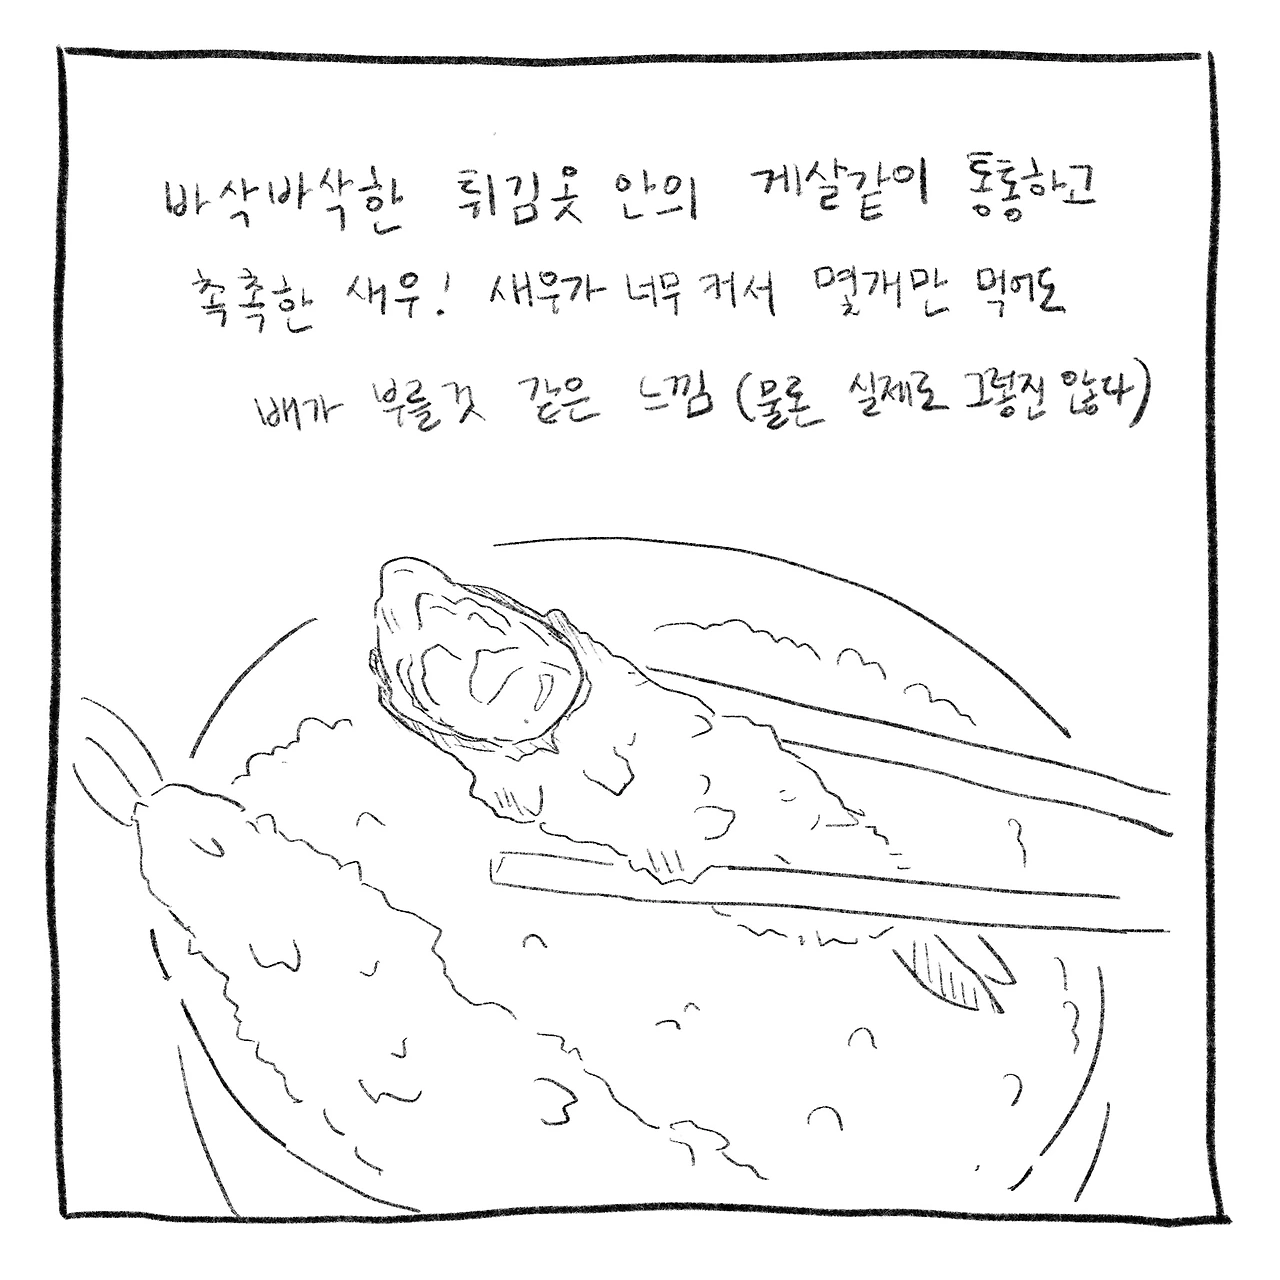 바삭바삭한 튀김옷 안의 게살같이 통통하고
촉촉한 새우! 새우가 너무 커서 몇개만 먹어도
배가 부를것 같은 느낌 (물론 실제로 그렇진 않다)